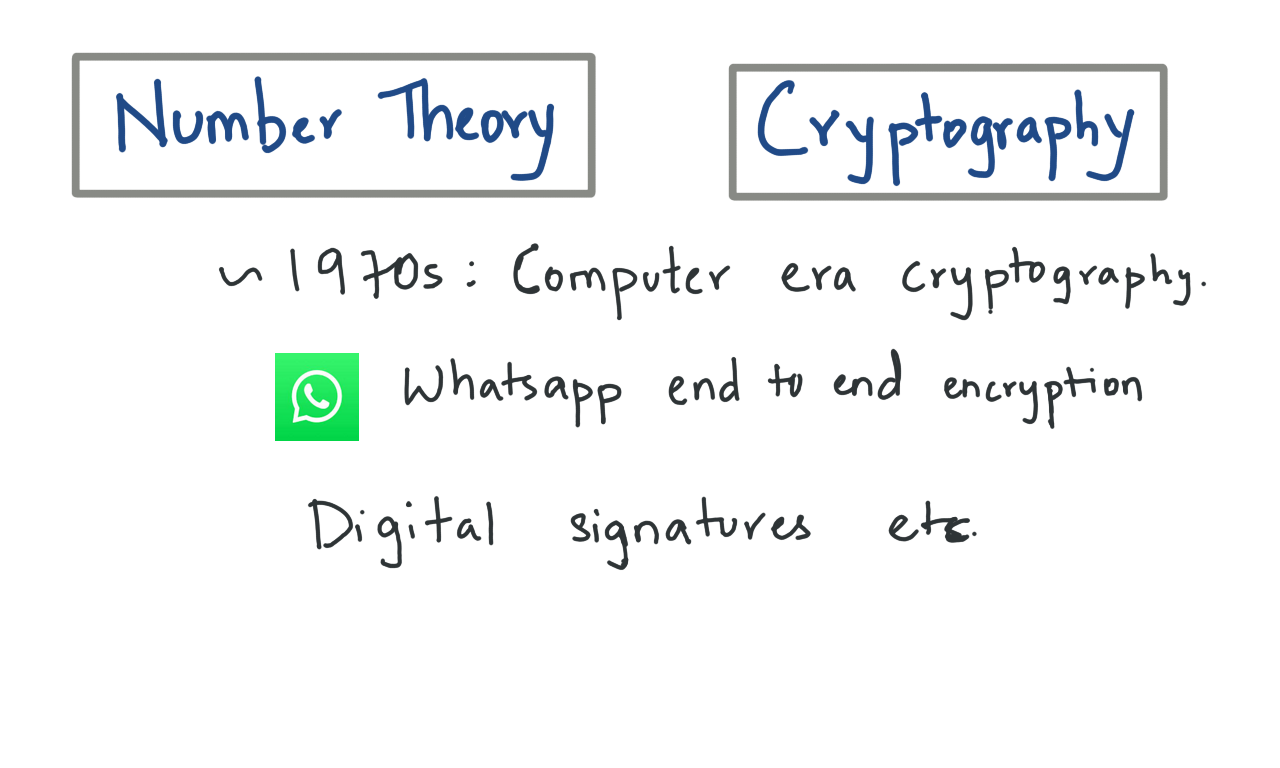 Number Theory
Cryptography
~ 1970s : Computer era cryptography.
Whatsapp end to end encryption
Digital signatures etc.